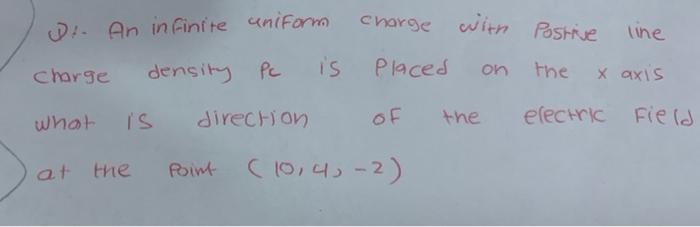 Q:- An infinite uniform charge with Postive line
charge density Pc is Placed on the x axis
what is direction of the electric Field
at the Point (10,4,-2)